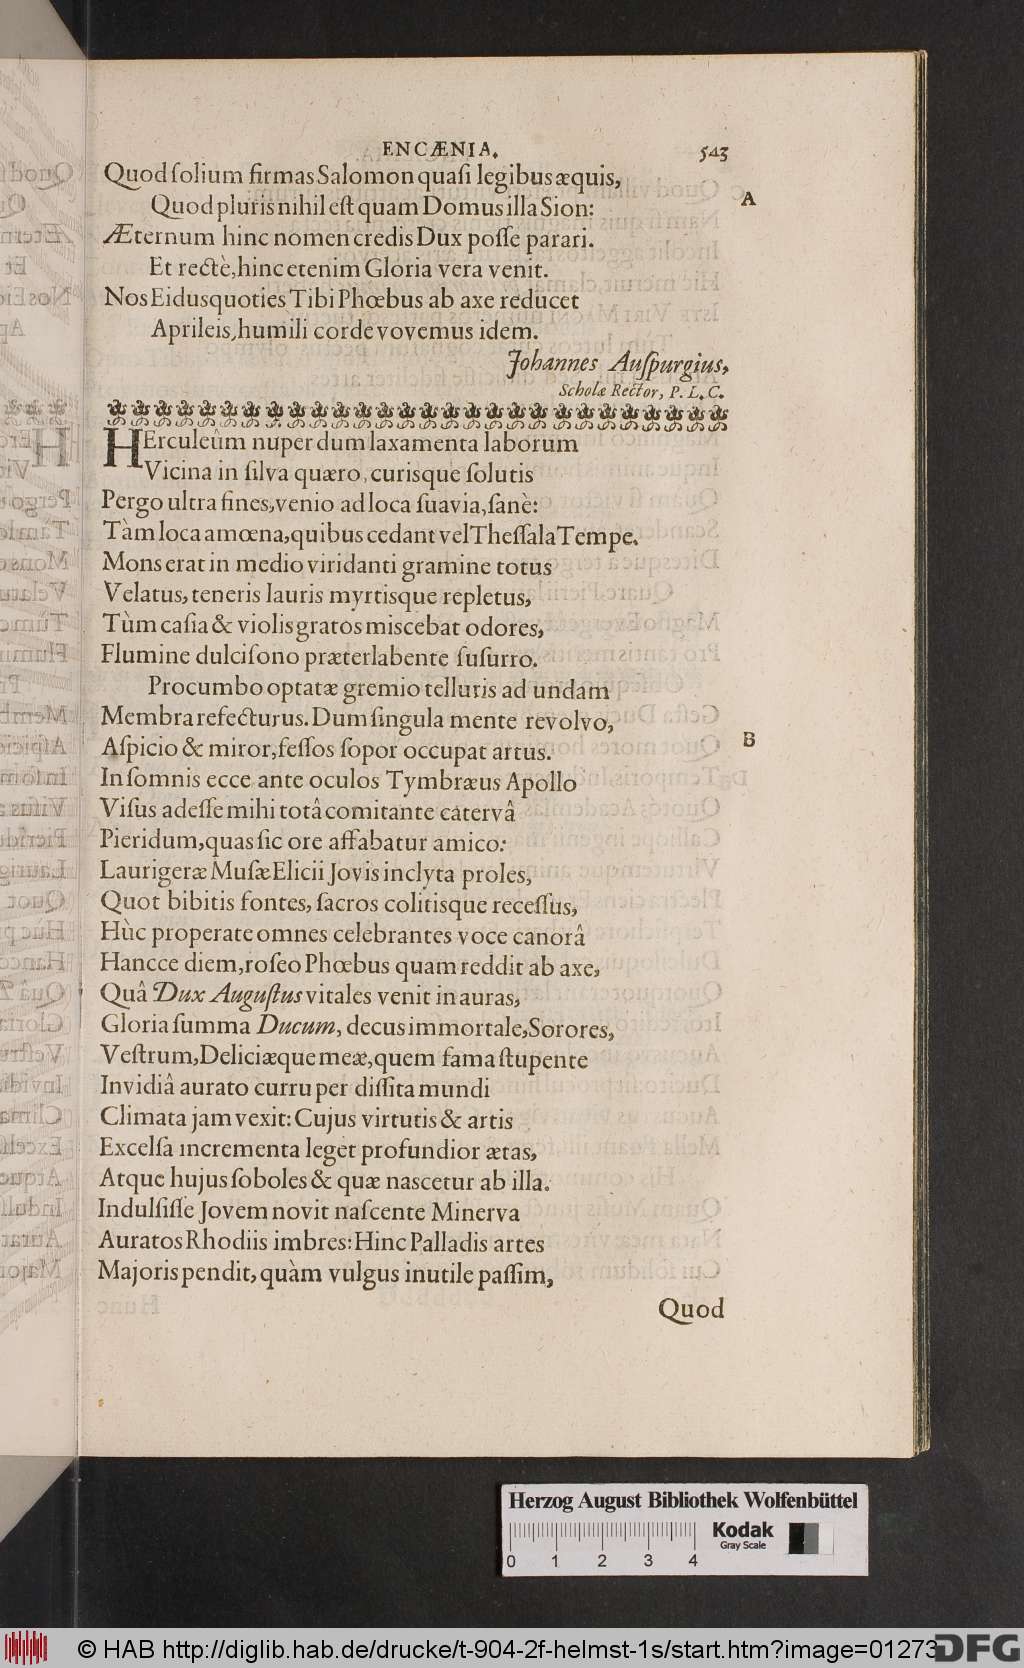 ENCÆNIA.
543
Quod ſolium firmas Salomon quaſi legibus æquis,
A
Quod pluris nihil eſt quam Domus illa Sion:
Æternum hinc nomen credis Dux poſſe parari.
Et rectè, hinc etenim Gloria vera venit.
Nos Eidus quoties Tibi Phœbus ab axe reducet
Aprileis, humili corde vovemus idem.
Johannes Auſpurgius,
Scholæ Rector, P. L. C.
HErculeûm nuper dum laxamenta laborum
Vicina in ſilva quæro, curisque ſolutis
Pergo ultra fines, venio ad loca ſuavia, ſanè:
Tàm loca amœna, quibus cedant vel Theſſala Tempe.
Mons erat in medio viridanti gramine totus
Velatus, teneris lauris myrtisque repletus,
Tùm caſia & violis gratos miscebat odores,
Flumine dulciſono præterlabente ſuſurro.
Procumbo optatæ gremio telluris ad undam
Membra refecturus. Dum ſingula mente revolvo,
B
Aſpicio & miror, feſſos ſopor occupat artus.
In ſomnis ecce ante oculos Tymbræus Apollo
Viſus adeſſe mihi totâ comitante catervâ
Pieridum, quas ſic ore affabatur amico:
Laurigeræ Muſæ Elicii Jovis inclyta proles,
Quot bibitis fontes, ſacros colitisque receſſus,
Hùc properate omnes celebrantes voce canorâ
Hancce diem, roſeo Phœbus quam reddit ab axe,
Quâ Dux Auguſtus vitales venit in auras,
Gloria ſumma Ducum, decus immortale, Sorores,
Veſtrum, Deliciæque meæ, quem fama ſtupente
Invidiâ aurato curru per diſſita mundi
Climata jam vexit: Cujus virtutis & artis
Excelſa incrementa leget profundior ætas,
Atque hujus ſoboles & quæ nascetur ab illa.
Indulſiſſe Jovem novit naſcente Minerva
Auratos Rhodiis imbres: Hinc Palladis artes
Majoris pendit, quàm vulgus inutile paſſim,
Quod
Herzog August Bibliothek Wolfenbüttel
Kodak
Gray Scale
0 1 2 3 4
© HAB http://diglib.hab.de/drucke/t-904-2f-helmst-1s/start.htm?image=01273
DFG